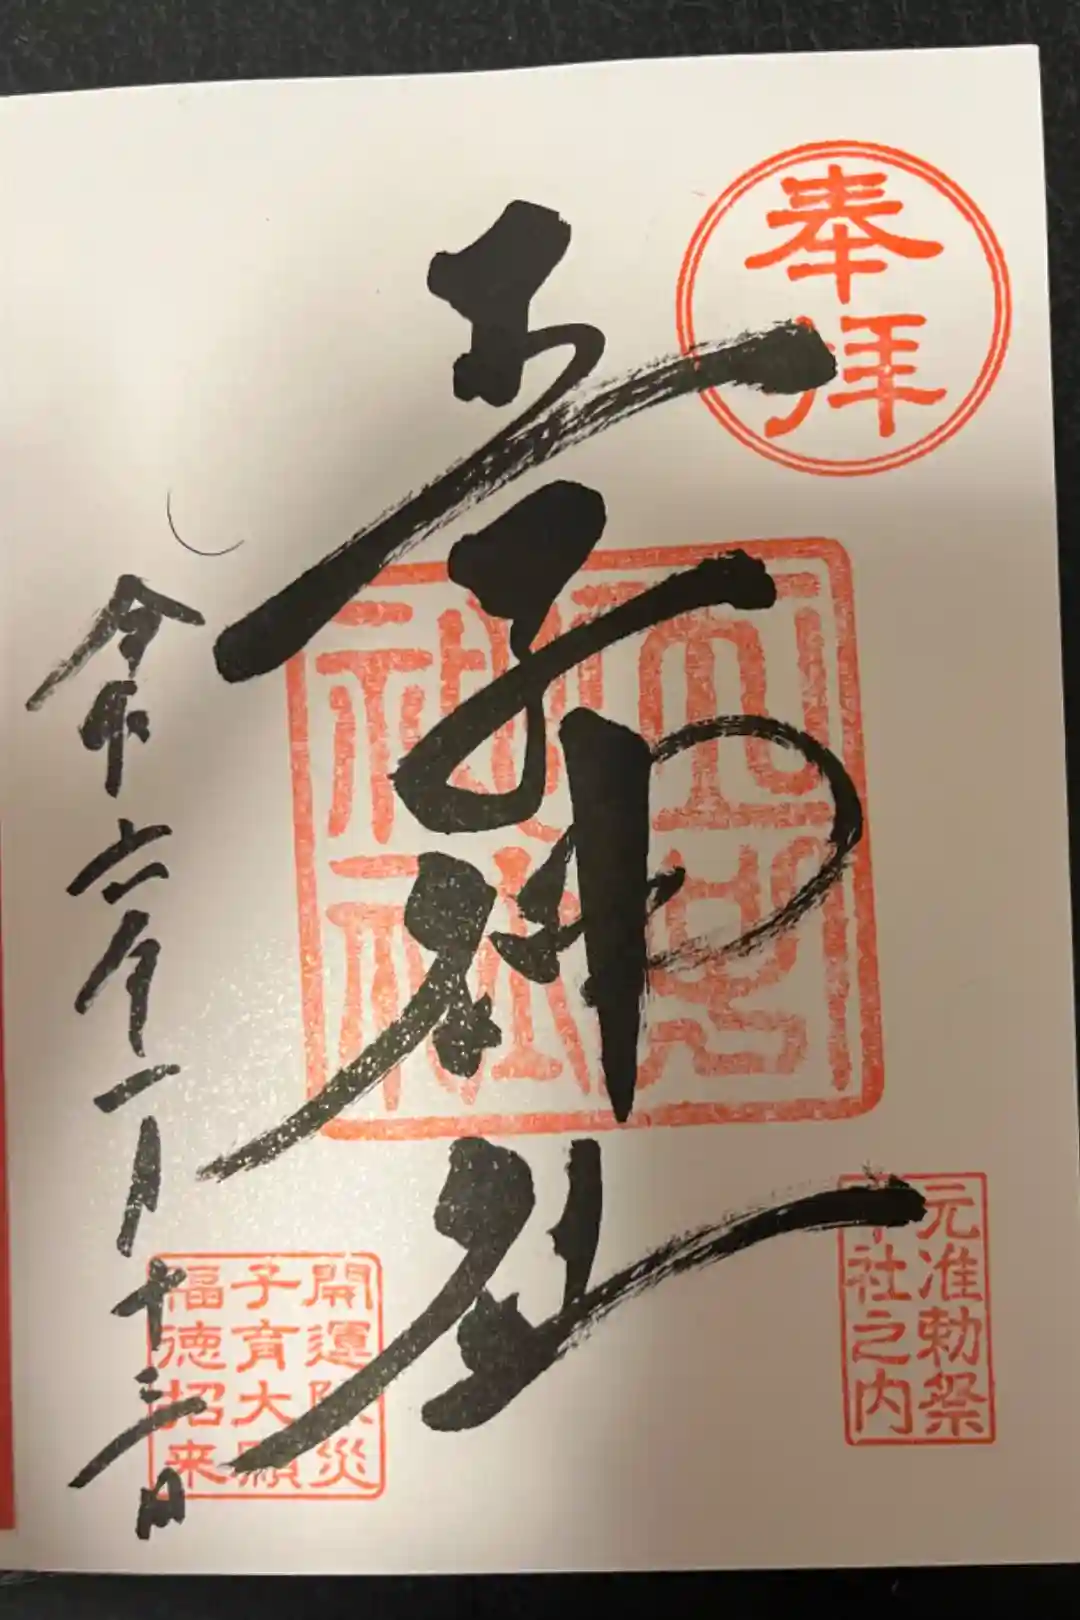 奉拝
元准勅祭
十社之内
王子神社
開運除災
子育大願
福徳招来
令和六年一月十三日